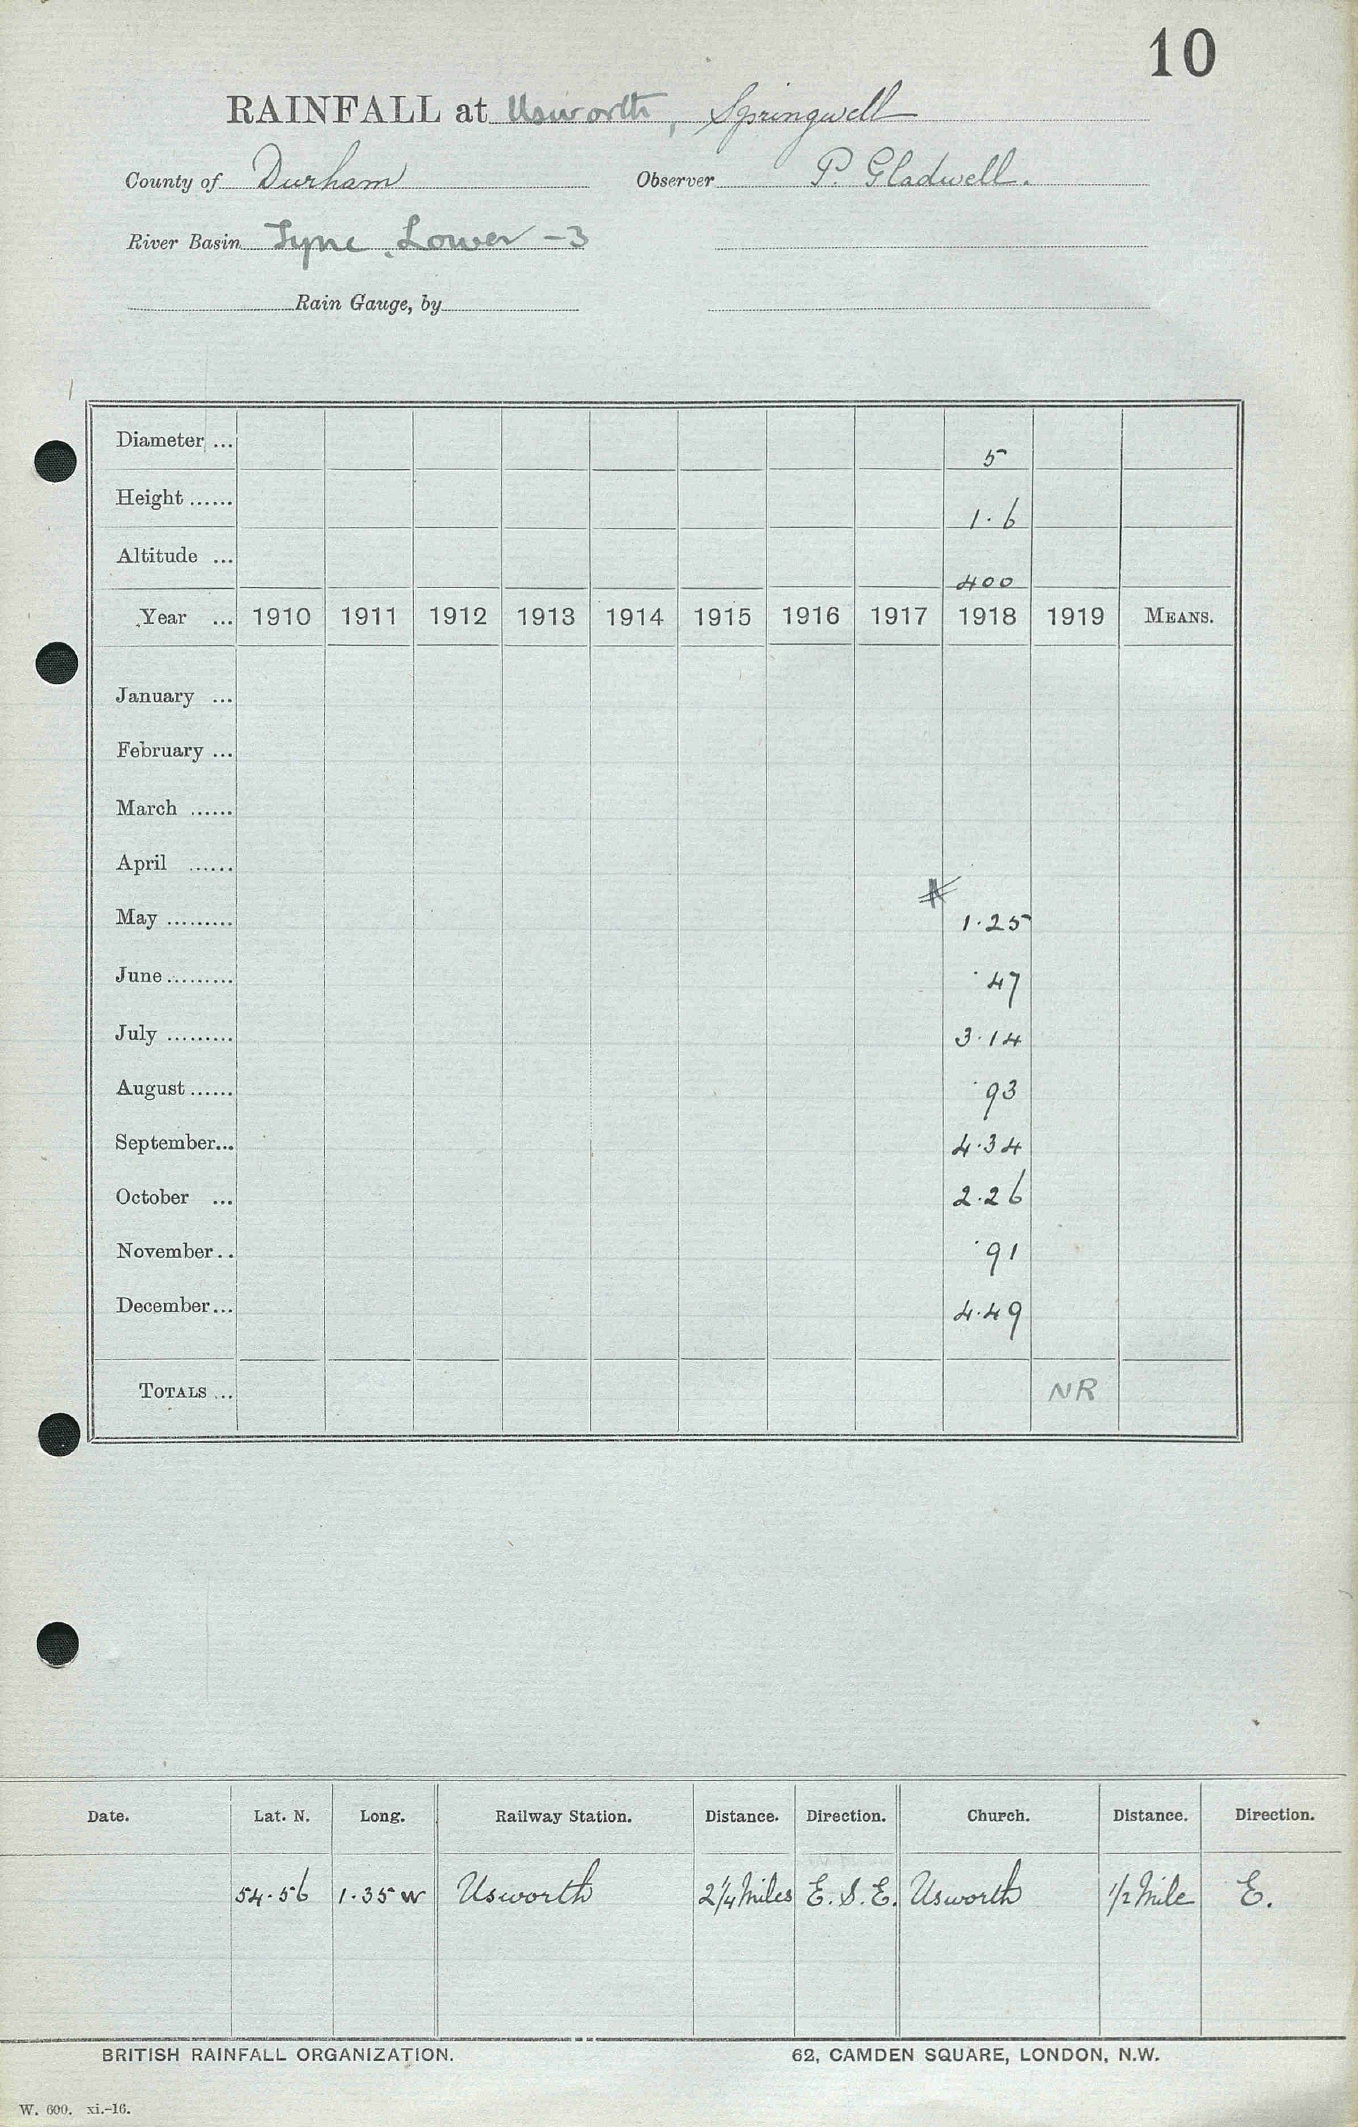 10
RAINFALL at Usworth, Springwell
County of Durham Observer P. Gladwell.
River Basin Tyne, Lower -3
Rain Gauge, by
Diameter ... 5
Height ...... 1.6
Altitude ... 400
Year ... 1910 1911 1912 1913 1914 1915 1916 1917 1918 1919 MEANS.
January ...
February ...
March ......
April ......
May ......... 1.25
June ......... .47
July ......... 3.14
August ...... .93
September... 4.34
October ... 2.26
November .. .91
December... 4.49
TOTALS ... NR
Date. Lat. N. Long. Railway Station. Distance. Direction. Church. Distance. Direction.
54.56 1.35 W Usworth 2¼ Miles E.S.E. Usworth 1/2 Mile E.
BRITISH RAINFALL ORGANIZATION. 62, CAMDEN SQUARE, LONDON, N.W.
W. 600. xi.-16.